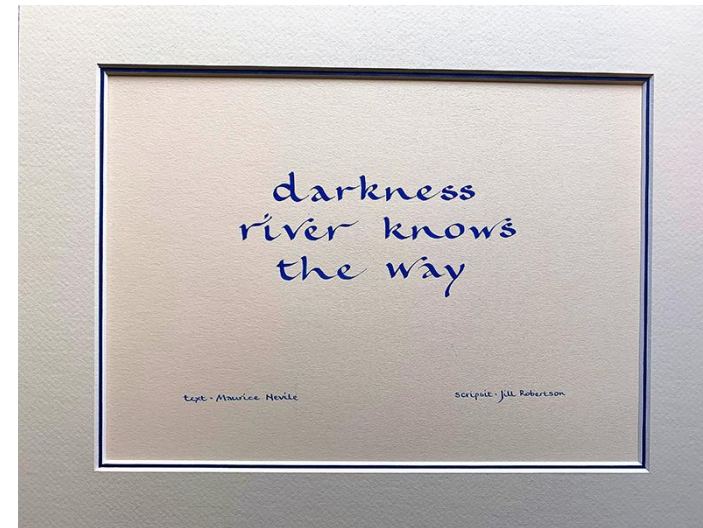 darkness
river knows
the way
text · Maurice Nevile
scripsit · Jill Robertson